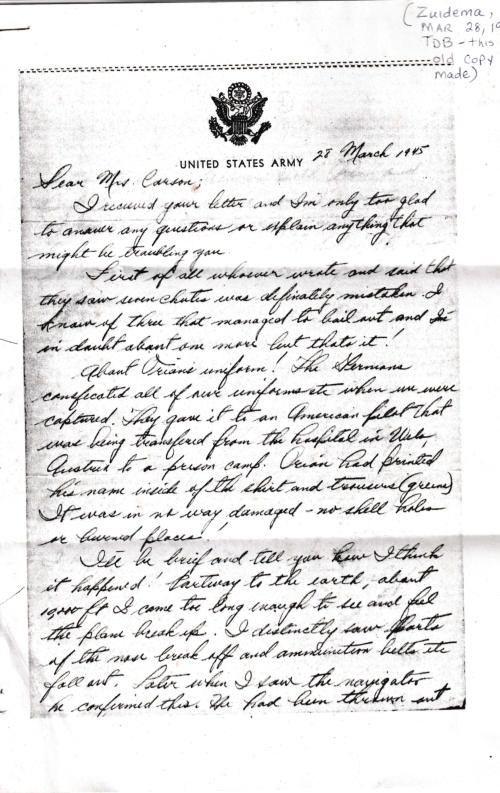 (Zuidema,
MAR 28, 19
TDB - this
old copy
made)
UNITED STATES ARMY
28 March 1945
Dear Mrs. Carson;
I received your letter and I'm only too glad
to answer any questions or explain anything that
might be troubling you.
First of all whoever wrote and said that
they saw seven chutes was definately mistaken. I
know of three that managed to bail out and I'm
in doubt about one more but thats it!
About Orian's uniform! The Germans
consficated all of our uniforms etc when we were
captured. They gave it to an American pilot that
was being transfered from the hospital in Wels,
Austria to a prison camp. Orian had printed
his name inside of the shirt and trousers (greens)
It was in no way damaged - no shell holes
or burned places!
I'll be brief and tell you how I think
it happened! Partway to the earth, about
ft I came too long enough to see and feel
the plane break up. I distinctly saw parts
of the nose break off and ammunition belts etc
fall out. Later when I saw the navigator
he confirmed this. He had been thrown out